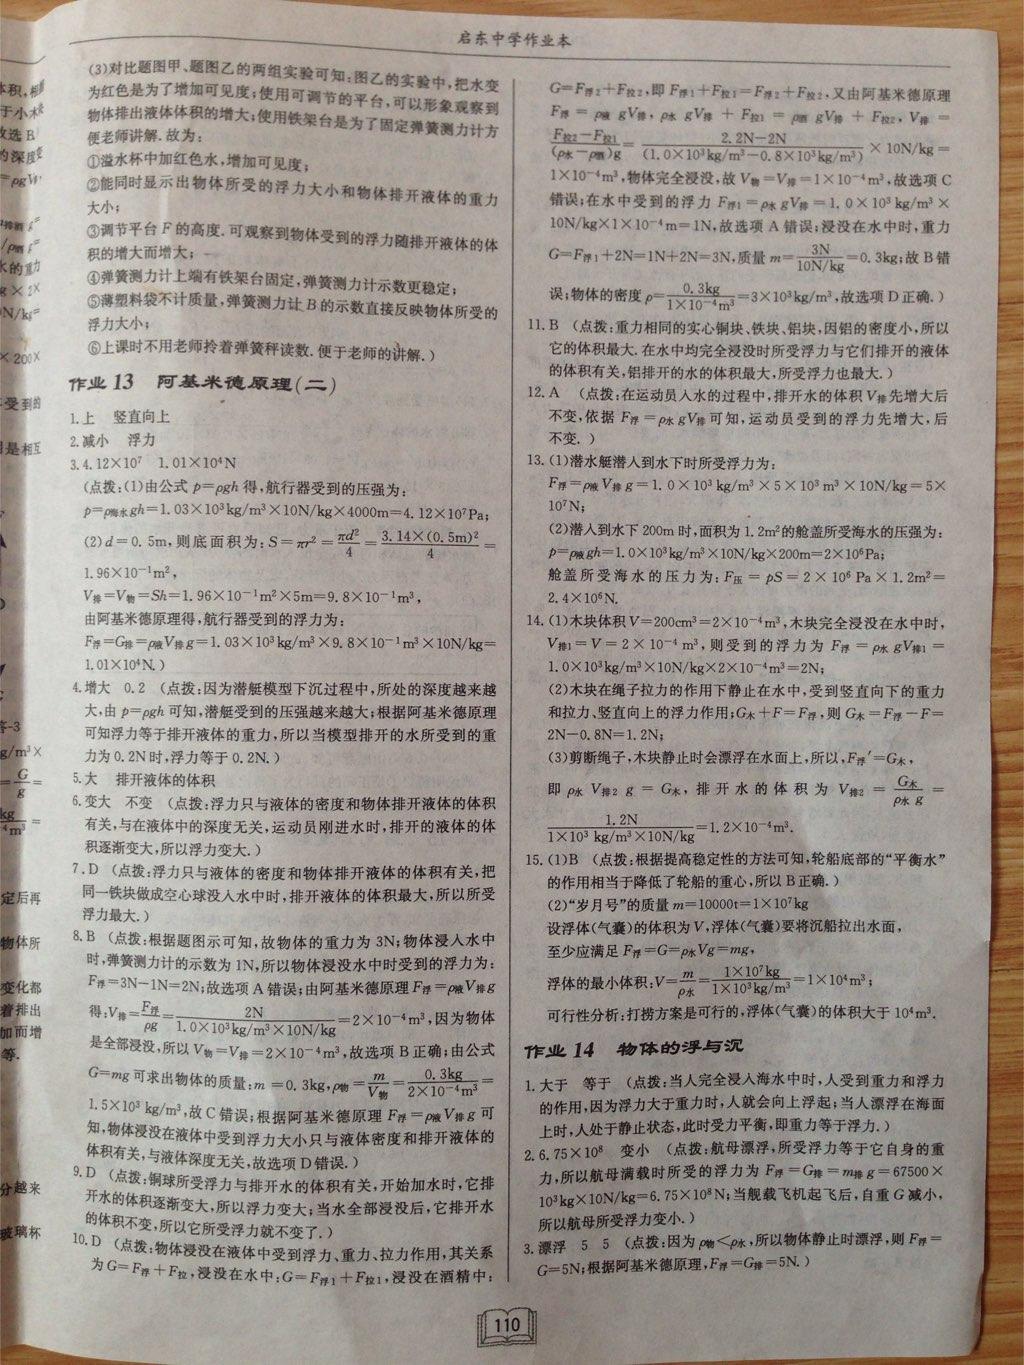 启东中学作业本
(3)对比题图甲、题图乙的两组实验可知:图乙的实验中,把水变
为红色是为了增加可见度;使用可调节的平台,可以形象观察到
物体排出液体体积的增大;使用铁架台是为了固定弹簧测力计方
便老师讲解.故为:
①溢水杯中加红色水,增加可见度;
②能同时显示出物体所受的浮力大小和物体排开液体的重力
大小;
③调节平台F的高度.可观察到物体受到的浮力随排开液体的体
积的增大而增大;
④弹簧测力计上端有铁架台固定,弹簧测力计示数更稳定;
⑤薄塑料袋不计质量,弹簧测力计B的示数直接反映物体所受的
浮力大小;
⑥上课时不用老师拎着弹簧秤读数.便于老师的讲解.)
作业13 阿基米德原理(二)
1.上 竖直向上
2.减小 浮力
3.4.12×10⁷ 1.01×10⁴N
(点拨:(1)由公式p=ρgh得,航行器受到的压强为:
p=ρ海水gh=1.03×10³kg/m³×10N/kg×4000m=4.12×10⁷Pa;
(2)d=0.5m,则底面积为:S=πr²=πd²/4=3.14×(0.5m)²/4=
1.96×10⁻¹m²,
V排=V物=Sh=1.96×10⁻¹m²×5m=9.8×10⁻¹m³,
由阿基米德原理得,航行器受到的浮力为:
F浮=G排=ρ液V排g=1.03×10³kg/m³×9.8×10⁻¹m³×10N/kg=
1.01×10⁴N.)
4.增大 0.2 (点拨:因为潜艇模型下沉过程中,所处的深度越来越
大,由p=ρgh可知,潜艇受到的压强越来越大;根据阿基米德原理
可知浮力等于排开液体的重力,所以当模型排开的水所受到的重
力为0.2N时,浮力等于0.2N.)
5.大 排开液体的体积
6.变大 不变 (点拨:浮力只与液体的密度和物体排开液体的体积
有关,与在液体中的深度无关,运动员刚进水时,排开的液体的体
积逐渐变大,所以浮力变大.)
7.D (点拨:浮力只与液体的密度和物体排开液体的体积有关,把
同一铁块做成空心球没入水中时,排开液体的体积最大,所以所受
浮力最大.)
8.B (点拨:根据题图示可知,故物体的重力为3N;物体浸入水中
时,弹簧测力计的示数为1N,所以物体浸没水中时受到的浮力为:
F浮=3N-1N=2N;故选项A错误;由阿基米德原理F浮=ρ液V排g
得:V排=F浮/ρg=2N/1.0×10³kg/m³×10N/kg=2×10⁻⁴m³,因为物体
是全部浸没,所以V物=V排=2×10⁻⁴m³,故选项B正确;由公式
G=mg可求出物体的质量:m=0.3kg,ρ物=m/V物=0.3kg/2×10⁻⁴m³=
1.5×10³kg/m³,故C错误;根据阿基米德原理F浮=ρ液V排g可
知,物体浸没在液体中受到浮力大小只与液体密度和排开液体的
体积有关,与液体深度无关,故选项D错误.)
9.D (点拨:铜球所受浮力与排开水的体积有关,开始加水时,它排
开水的体积逐渐变大,所以浮力变大;当水全部浸没后,它排开水
的体积不变,所以它所受浮力就不变了.)
10.D (点拨:物体浸没在液体中受到浮力、重力、拉力作用,其关系
为G=F浮+F拉,浸没在水中:G=F浮1+F拉1,浸没在酒精中:
G=F浮2+F拉2,即F浮1+F拉1=F浮2+F拉2,又由阿基米德原理
F浮=ρ液gV排,ρ水gV排+F拉1=ρ酒gV排+F拉2,V排=
F拉2-F拉1/(ρ水-ρ酒)g=2.2N-2N/(1.0×10³kg/m³-0.8×10³kg/m³)×10N/kg=
1×10⁻⁴m³,物体完全浸没,故V物=V排=1×10⁻⁴m³,故选项C
错误;在水中受到的浮力F浮1=ρ水gV排=1.0×10³kg/m³×
10N/kg×1×10⁻⁴m=1N,故选项A错误;浸没在水中时,重力
G=F浮1+2N=1N+2N=3N,质量m=3N/10N/kg=0.3kg;故B错
误;物体的密度ρ=0.3kg/1×10⁻⁴m³=3×10³kg/m³,故选项D正确.)
11.B (点拨:重力相同的实心铜块、铁块、铝块,因铝的密度小,所以
它的体积最大.在水中均完全浸没时所受浮力与它们排开的液体
的体积有关,铝排开的水的体积最大,所受浮力也最大.)
12.A (点拨:在运动员入水的过程中,排开水的体积V排先增大后
不变,依据F浮=ρ水gV排可知,运动员受到的浮力先增大,后
不变.)
13.(1)潜水艇潜人到水下时所受浮力为:
F浮=ρ液V排g=1.0×10³kg/m³×5×10³m³×10N/kg=5×
10⁷N;
(2)潜人到水下200m时,面积为1.2m²的舱盖所受海水的压强为:
p=ρ液gh=1.0×10³kg/m³×10N/kg×200m=2×10⁶Pa;
舱盖所受海水的压力为:F压=pS=2×10⁶Pa×1.2m²=
2.4×10⁶N.
14.(1)木块体积V=200cm³=2×10⁻⁴m³,木块完全浸没在水中时,
V排1=V=2×10⁻⁴m³,则受到的浮力为F浮=ρ水gV排1=
1.0×10³kg/m³×10N/kg×2×10⁻⁴m³=2N;
(2)木块在绳子拉力的作用下静止在水中,受到竖直向下的重力
和拉力、竖直向上的浮力作用;G木+F=F浮,则G木=F浮-F=
2N-0.8N=1.2N;
(3)剪断绳子,木块静止时会漂浮在水面上,所以,F浮′=G木,
即ρ水V排2g=G木,排开水的体积为V排2=G木/ρ水g=
1.2N/1×10³kg/m³×10N/kg=1.2×10⁻⁴m³.
15.(1)B (点拨:根据提高稳定性的方法可知,轮船底部的“平衡水”
的作用相当于降低了轮船的重心,所以B正确.)
(2)“岁月号”的质量m=10000t=1×10⁷kg
设浮体(气囊)的体积为V,浮体(气囊)要将沉船拉出水面,
至少应满足F浮=G=ρ水Vg=mg,
浮体的最小体积:V=m/ρ水=1×10⁷kg/1×10³kg/m³=1×10⁴m³;
可行性分析:打捞方案是可行的,浮体(气囊)的体积大于10⁴m³.
作业14 物体的浮与沉
1.大于 等于 (点拨:当人完全浸入海水中时,人受到重力和浮力
的作用,因为浮力大于重力时,人就会向上浮起;当人漂浮在海面
上时,人处于静止状态,此时受力平衡,即重力等于浮力.)
2.6.75×10⁸ 变小 (点拨:航母漂浮,所受浮力等于它自身的重
力,所以航母满载时所受的浮力为F浮=G排=m排g=67500×
10³kg×10N/kg=6.75×10⁸N;当舰载飞机起飞后,自重G减小,
所以航母所受浮力变小.)
3.漂浮 5 5 (点拨:因为ρ物<ρ水,所以物体静止时漂浮,则F浮=
G=5N;根据阿基米德原理,F浮=G排=5N.)
110